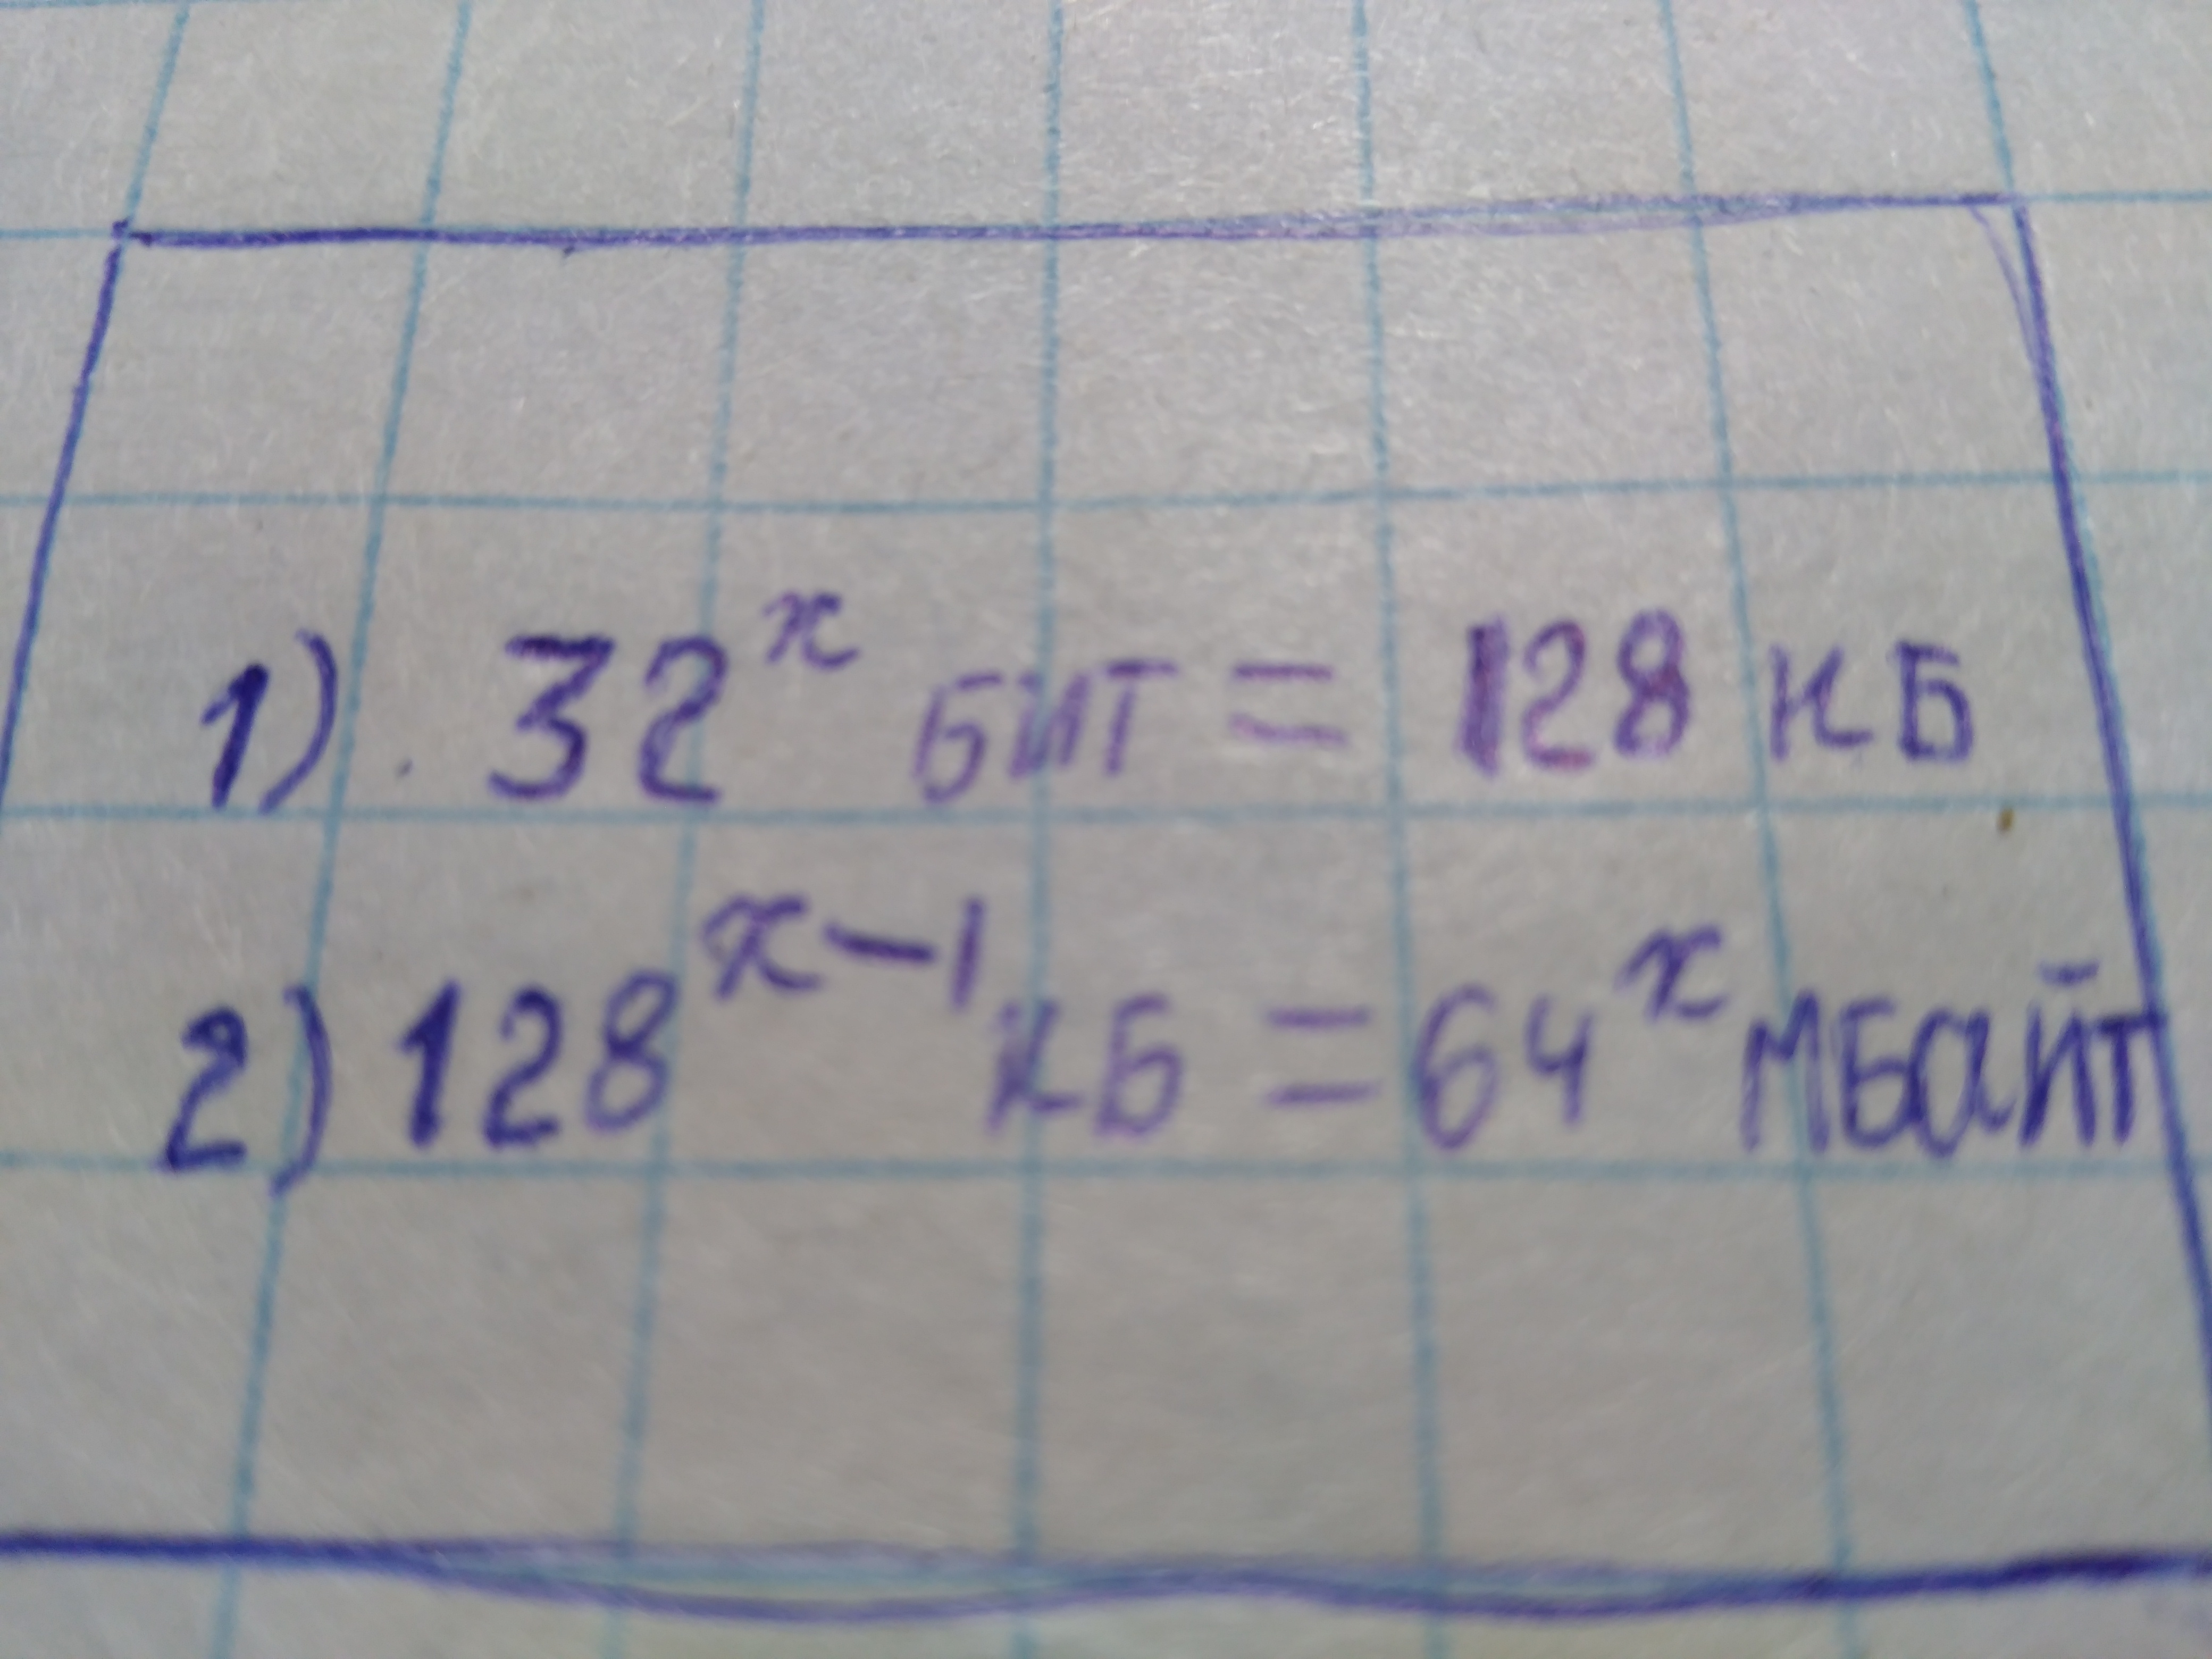 1) 32ˣ бит = 128 кБ
2) 128ˣ⁻¹ кБ = 64ˣ мБайт